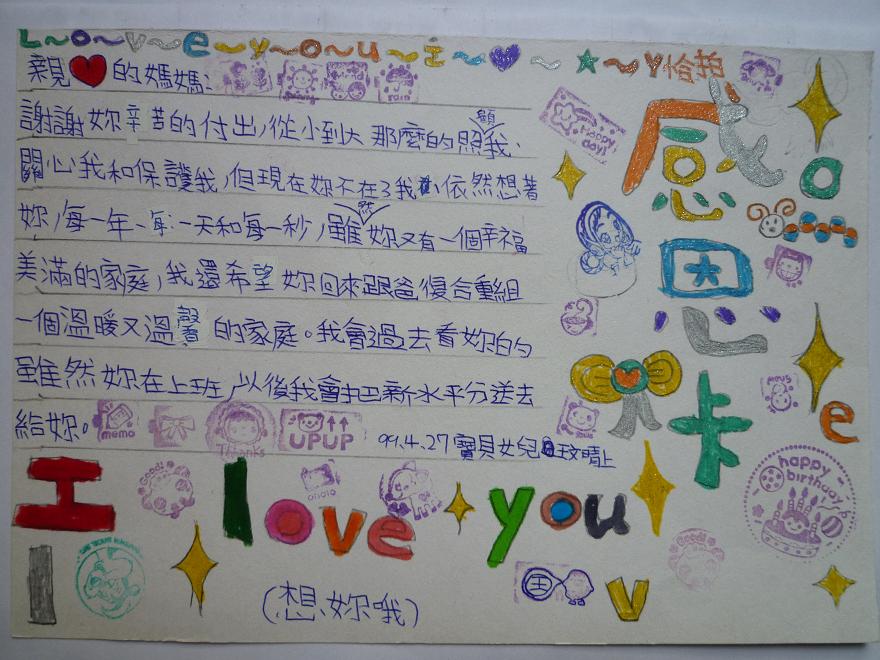 L~O~V~E~Y~O~U~I~
親❤的媽媽:
謝謝妳辛苦的付出,從小到大那麼的照顧我、
關心我和保護我,但現在妳不在了我依然想著
妳,每一年、每一天和每一秒,雖然妳又有一個幸福
美滿的家庭,我還希望妳回來跟爸復合重組
一個溫暖又溫馨的家庭。我會過去看妳的
雖然妳在上班,以後我會把薪水平分送去
給妳。
99.4.27寶貝女兒玟晴上
感恩卡
I love you
(想妳哦)
memo
Thanks
UPUP
Happy day!
happy birthday
Good!
Good!
rain